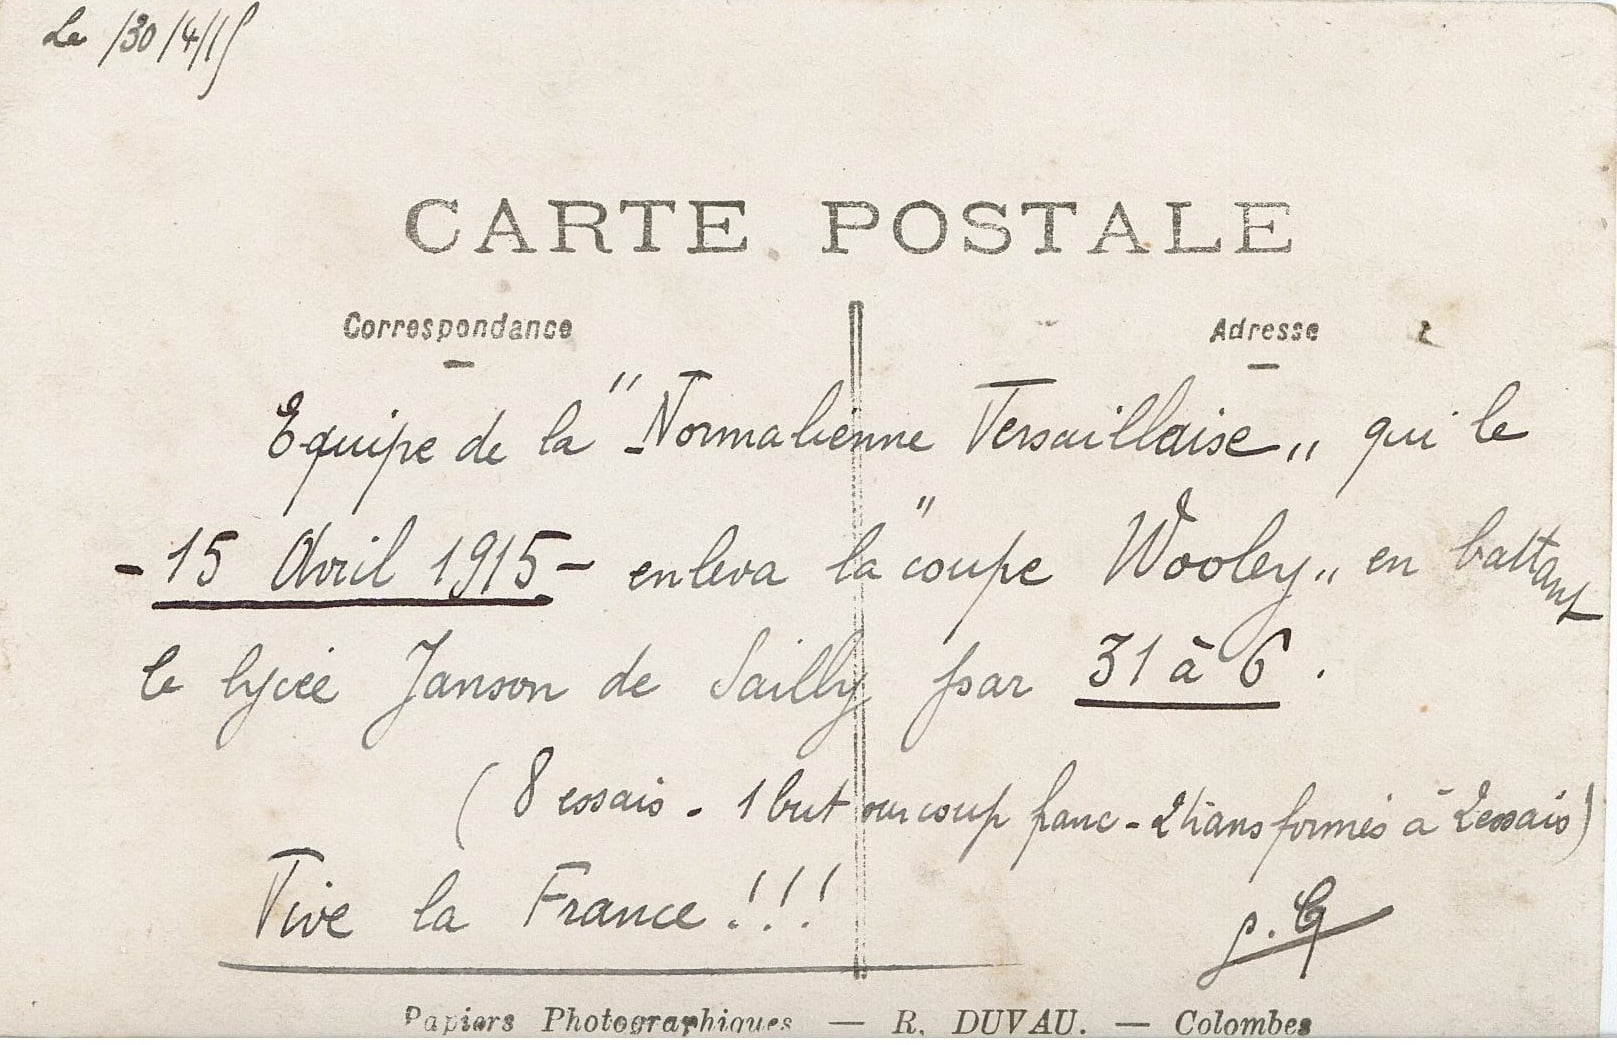 Le /30/4/15
CARTE POSTALE
Correspondance
Adresse
Equipe de la "Normalienne Versaillaise„ qui le
- 15 Avril 1915 - enleva la "coupe Wooley„ en battant
le lycée Janson de Sailly par 31 à 6.
(8 essais - 1 but sur coup franc - 2 transformés à 2 essais)
Vive la France!!!
p. G
Papiers Photographiques — R. DUVAU. — Colombes